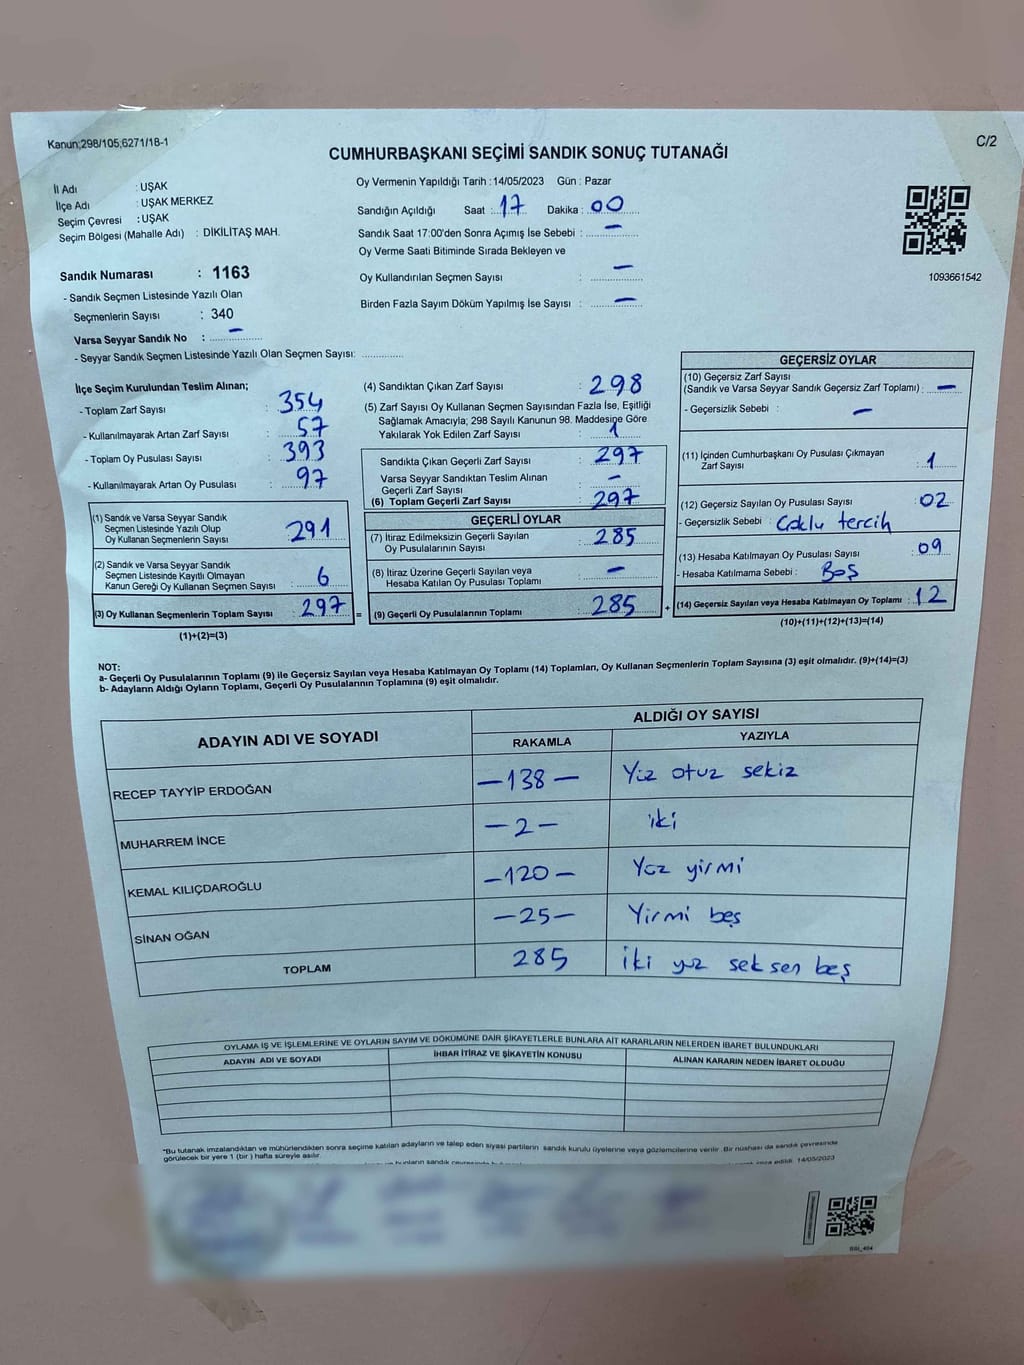 Kanun;298/105;6271/18-1
C/2
CUMHURBAŞKANI SEÇİMİ SANDIK SONUÇ TUTANAĞI
İl Adı : UŞAK
İlçe Adı : UŞAK MERKEZ
Seçim Çevresi : UŞAK
Seçim Bölgesi (Mahalle Adı) : DİKİLİTAŞ MAH.
Sandık Numarası : 1163
- Sandık Seçmen Listesinde Yazılı Olan
Seçmenlerin Sayısı : 340
Varsa Seyyar Sandık No : –
- Seyyar Sandık Seçmen Listesinde Yazılı Olan Seçmen Sayısı: ............
Oy Vermenin Yapıldığı Tarih : 14/05/2023 Gün : Pazar
Sandığın Açıldığı Saat : 17 Dakika : 00
Sandık Saat 17:00'den Sonra Açımış İse Sebebi : –
Oy Verme Saati Bitiminde Sırada Bekleyen ve
Oy Kullandırılan Seçmen Sayısı : –
Birden Fazla Sayım Döküm Yapılmış İse Sayısı : –
1093661542
İlçe Seçim Kurulundan Teslim Alınan;
- Toplam Zarf Sayısı : 354
- Kullanılmayarak Artan Zarf Sayısı : 57
- Toplam Oy Pusulası Sayısı : 393
- Kullanılmayarak Artan Oy Pusulası : 97
(1) Sandık ve Varsa Seyyar Sandık
Seçmen Listesinde Yazılı Olup
Oy Kullanan Seçmenlerin Sayısı : 291
(2) Sandık ve Varsa Seyyar Sandık
Seçmen Listesinde Kayıtlı Olmayan
Kanun Gereği Oy Kullanan Seçmen Sayısı : 6
(3) Oy Kullanan Seçmenlerin Toplam Sayısı : 297 =
(1)+(2)=(3)
(4) Sandıktan Çıkan Zarf Sayısı : 298
(5) Zarf Sayısı Oy Kullanan Seçmen Sayısından Fazla İse, Eşitliği
Sağlamak Amacıyla; 298 Sayılı Kanunun 98. Maddesine Göre
Yakılarak Yok Edilen Zarf Sayısı : 1
Sandıkta Çıkan Geçerli Zarf Sayısı : 297
Varsa Seyyar Sandıktan Teslim Alınan
Geçerli Zarf Sayısı : –
(6) Toplam Geçerli Zarf Sayısı : 297
GEÇERLİ OYLAR
(7) İtiraz Edilmeksizin Geçerli Sayılan
Oy Pusulalarının Sayısı : 285
(8) İtiraz Üzerine Geçerli Sayılan veya
Hesaba Katılan Oy Pusulası Toplamı : –
(9) Geçerli Oy Pusulalarının Toplamı : 285 +
GEÇERSİZ OYLAR
(10) Geçersiz Zarf Sayısı
(Sandık ve Varsa Seyyar Sandık Geçersiz Zarf Toplamı) : –
- Geçersizlik Sebebi : –
(11) İçinden Cumhurbaşkanı Oy Pusulası Çıkmayan
Zarf Sayısı : 1
(12) Geçersiz Sayılan Oy Pusulası Sayısı : 02
- Geçersizlik Sebebi : Çoklu tercih
(13) Hesaba Katılmayan Oy Pusulası Sayısı : 09
- Hesaba Katılmama Sebebi : Boş
(14) Geçersiz Sayılan veya Hesaba Katılmayan Oy Toplamı : 12
(10)+(11)+(12)+(13)=(14)
NOT:
a- Geçerli Oy Pusulalarının Toplamı (9) ile Geçersiz Sayılan veya Hesaba Katılmayan Oy Toplamı (14) Toplamları, Oy Kullanan Seçmenlerin Toplam Sayısına (3) eşit olmalıdır. (9)+(14)=(3)
b- Adayların Aldığı Oyların Toplamı, Geçerli Oy Pusulalarının Toplamına (9) eşit olmalıdır.
ADAYIN ADI VE SOYADI ALDIĞI OY SAYISI
RAKAMLA YAZIYLA
RECEP TAYYİP ERDOĞAN –138– Yüz otuz sekiz
MUHARREM İNCE –2– iki
KEMAL KILIÇDAROĞLU –120– Yüz yirmi
SİNAN OĞAN –25– Yirmi beş
TOPLAM 285 iki yüz seksen beş
OYLAMA İŞ VE İŞLEMLERİNE VE OYLARIN SAYIM VE DÖKÜMÜNE DAİR ŞİKAYETLERLE BUNLARA AİT KARARLARIN NELERDEN İBARET BULUNDUKLARI
ADAYIN ADI VE SOYADI İHBAR İTİRAZ VE ŞİKAYETİN KONUSU ALINAN KARARIN NEDEN İBARET OLDUĞU
*Bu tutanak imzalandıktan ve mühürlendikten sonra seçime katılan adayların ve talep eden siyasi partilerin sandık kurulu üyelerine veya gözlemcilerine verilir. Bir nüshası da sandık çevresinde
görülecek bir yere 1 (bir) hafta süreyle asılır.
14/05/2023